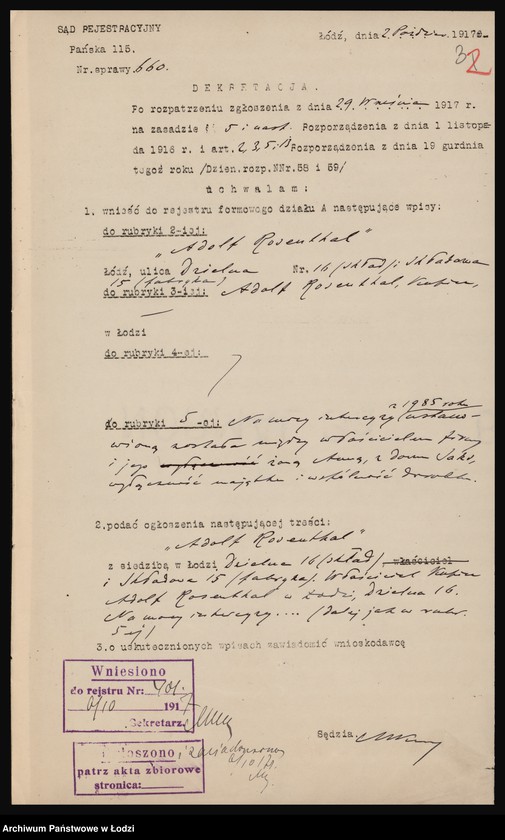 SĄD REJESTRACYJNY
Łódź, dnia 2. Paździer. 1917
Pańska 115.
Nr. sprawy. 660.
32
DEKRETACJA.
Po rozpatrzeniu zgłoszenia z dnia 29. Września 1917 r.
na zasadzie §§ 5 i nast. Rozporządzenia z dnia 1 listopa-
da 1916 r. i art. 2, 3, 5, Rozporządzenia z dnia 19 gurdnia
tegoż roku /Dzien.rozp.NNr.58 i 59/
uchwalam:
1. wnieść do rejestru formowego działu A następujące wpisy:
do rubryki 2-iej:
„Adolf Rosenthal"
Łódź, ulica Dzielna Nr. 16 /skład/ i Składowa
15 (fabryka)
do rubryki 3-iej: Adolf Rosenthal, Kupiec,
w Łodzi
do rubryki 4-ej:
z 1985 roku
do rubryki 5-ej: Na mocy intercyzy ustano-
wioną została między właścicielem firmy
i jego żoną Anną, z domu
wyłączność majątku i wspólność dorobk.
2.podać ogłoszenia następującej treści:
„Adolf Rosenthal"
z siedzibą w Łodzi Dzielna 16 (skład) właściciel
i Składowa 15 (fabryka). Właściciel Kupiec
Adolf Rosenthal w Łodzi, Dzielna 16.
Na mocy intercyzy .... (dalej jak w rubr.
5-ej)
3.o uskutecznionych wpisach zawiadomić wnioskodawcę
Wniesiono
do rejstru Nr: 401.
6/10 1917
Sekretarz:
Sędzia
Ogłoszono, i zawiadomiono
6/10 17.
patrz akta zbiorowe
stronica:
Archiwum Państwowe w Łodzi